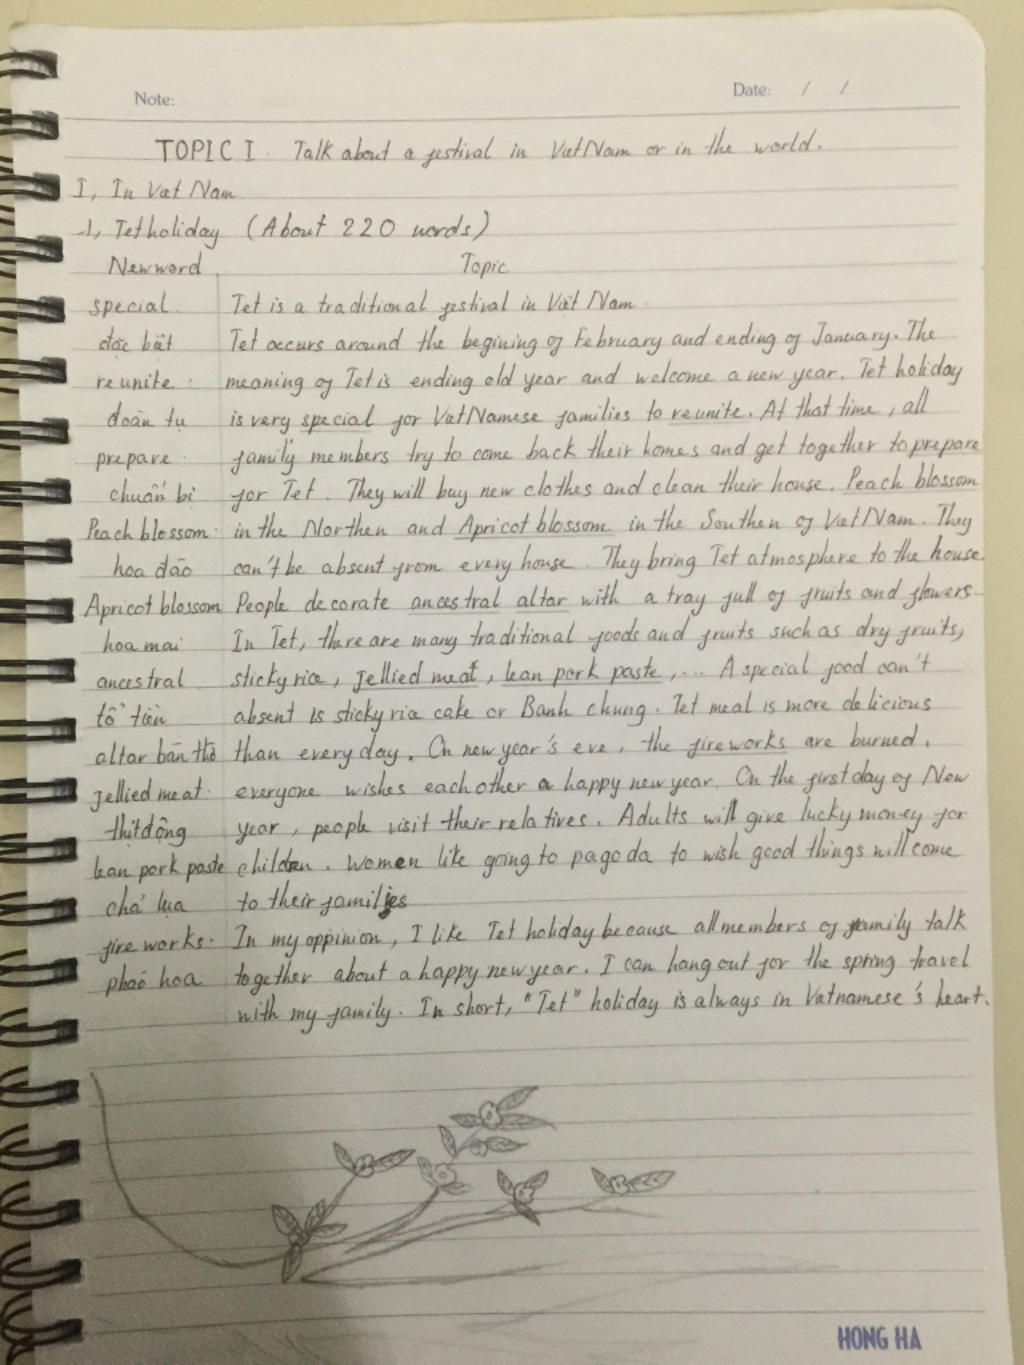 Note:
Date: / /
TOPIC I. Talk about a festival in VietNam or in the world.
I, In Viet Nam
1, Tet holiday (About 220 words)
New word Topic
special: Tet is a traditional festival in Việt Nam.
đặc biệt Tet occurs around the begining of February and ending of January. The
reunite: meaning of Tet is ending old year and welcome a new year. Tet holiday
đoàn tụ is very special for VietNamese families to reunite. At that time, all
prepare: family members try to come back their homes and get together to prepare
chuẩn bị for Tet. They will buy new clothes and clean their house. Peach blossom
Peach blossom: in the Northen and Apricot blossom in the Southen of Viet Nam. They
hoa đào can't be absent from every house. They bring Tet atmosphere to the house.
Apricot blossom People decorate ancestral altar with a tray full of fruits and flowers.
hoa mai In Tet, there are many traditional foods and fruits such as dry fruits,
ancestral sticky rice, jellied meat, lean pork paste,... A special food can't
tổ tiên absent is sticky rice cake or Banh chung. Tet meal is more delicious
altar bàn thờ than every day. On new year's eve, the fireworks are burned,
jellied meat: everyone wishes each other a happy new year. On the first day of New
thịt đông year, people visit their relatives. Adults will give lucky money for
lean pork paste children. Women like going to pagoda to wish good things will come
chả lụa to their families
fire works: In my oppinion, I like Tet holiday because all members of family talk
pháo hoa together about a happy new year. I can hang out for the spring travel
with my family. In short, "Tet" holiday is always in Vietnamese's heart.
HONG HA